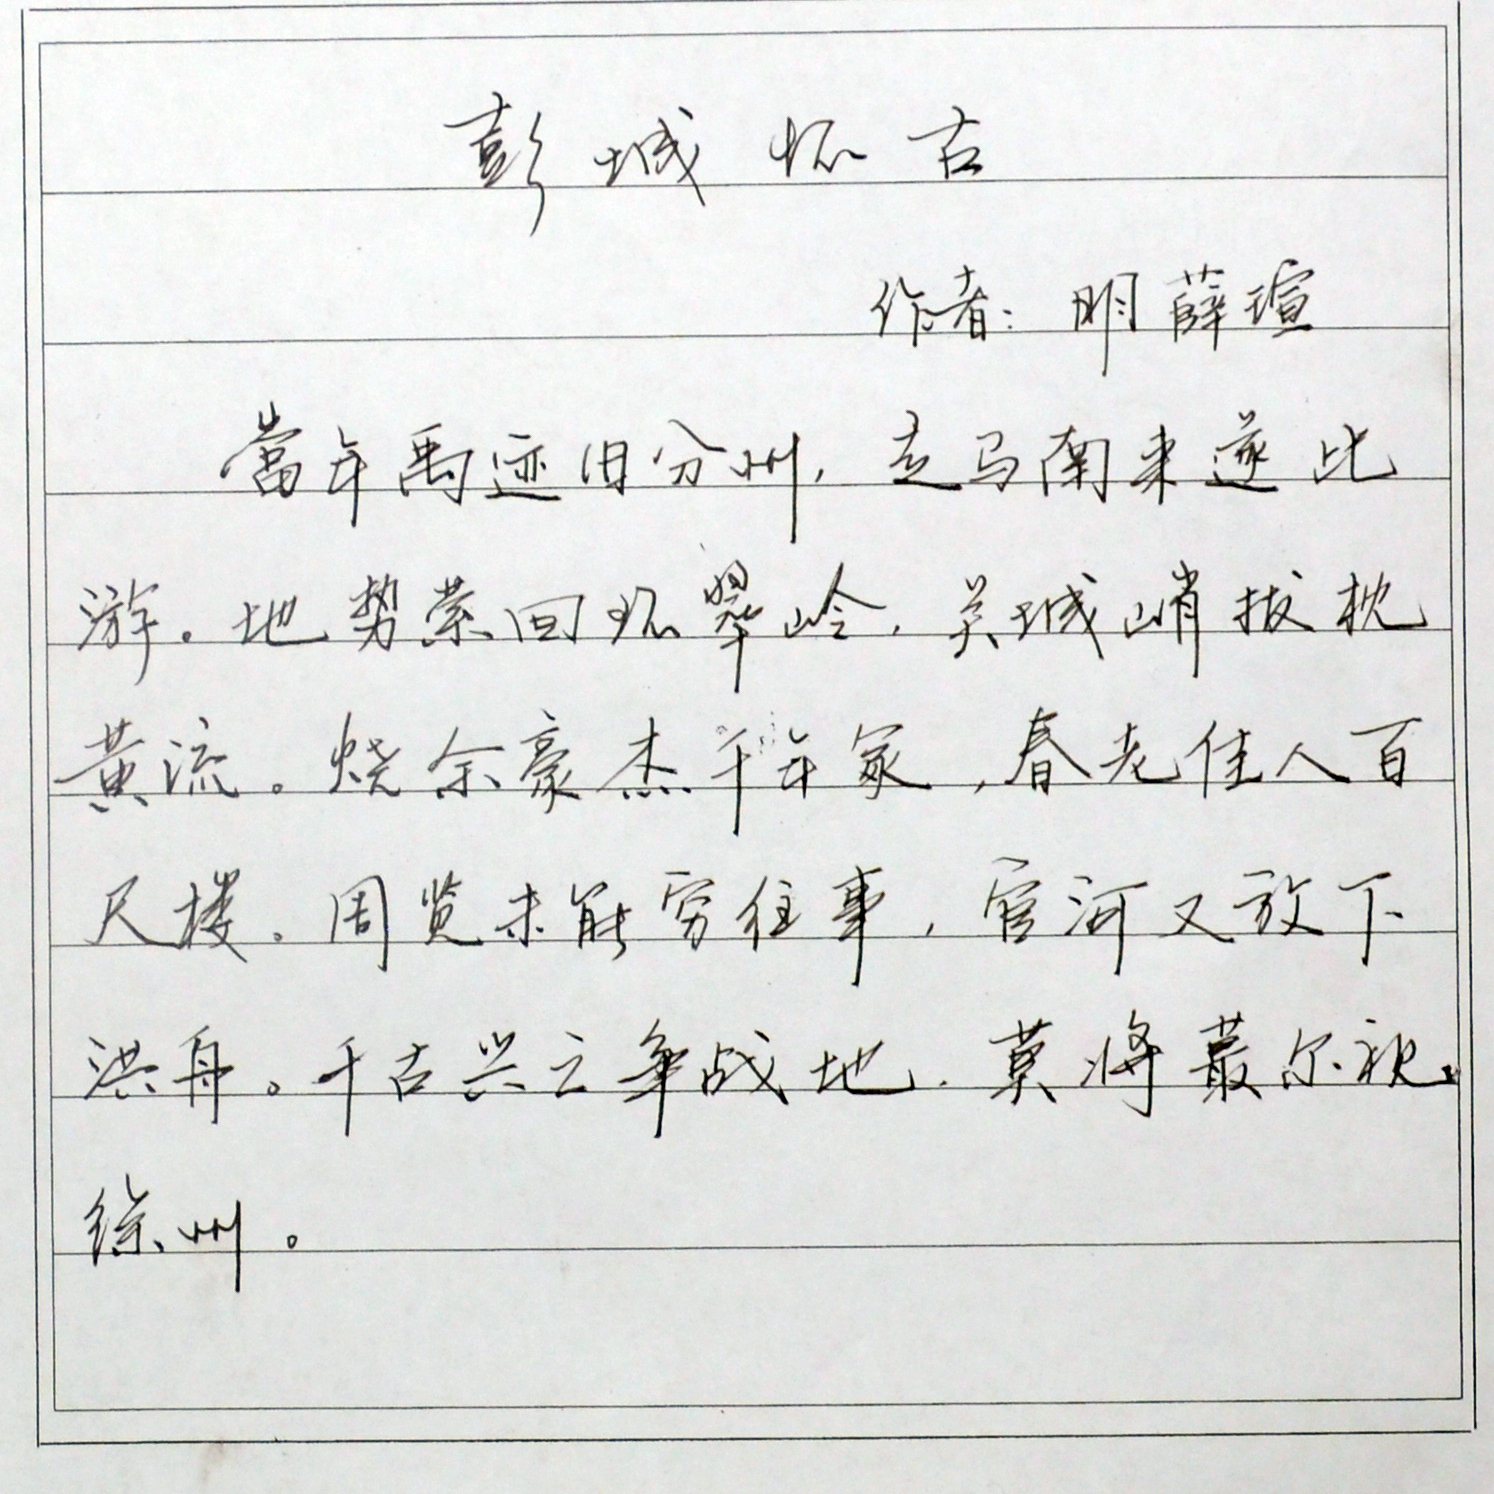 彭城怀古
作者:明薛瑄
當年禹迹旧分州,走马南来遂此
游。地势萦回环翠岭,关城峭拔枕
黄流。烧余豪杰千年冢,春老佳人百
尺楼。周览未能穷往事,官河又放下
洪舟。千古兴亡争战地,莫将蕞尔视
徐州。